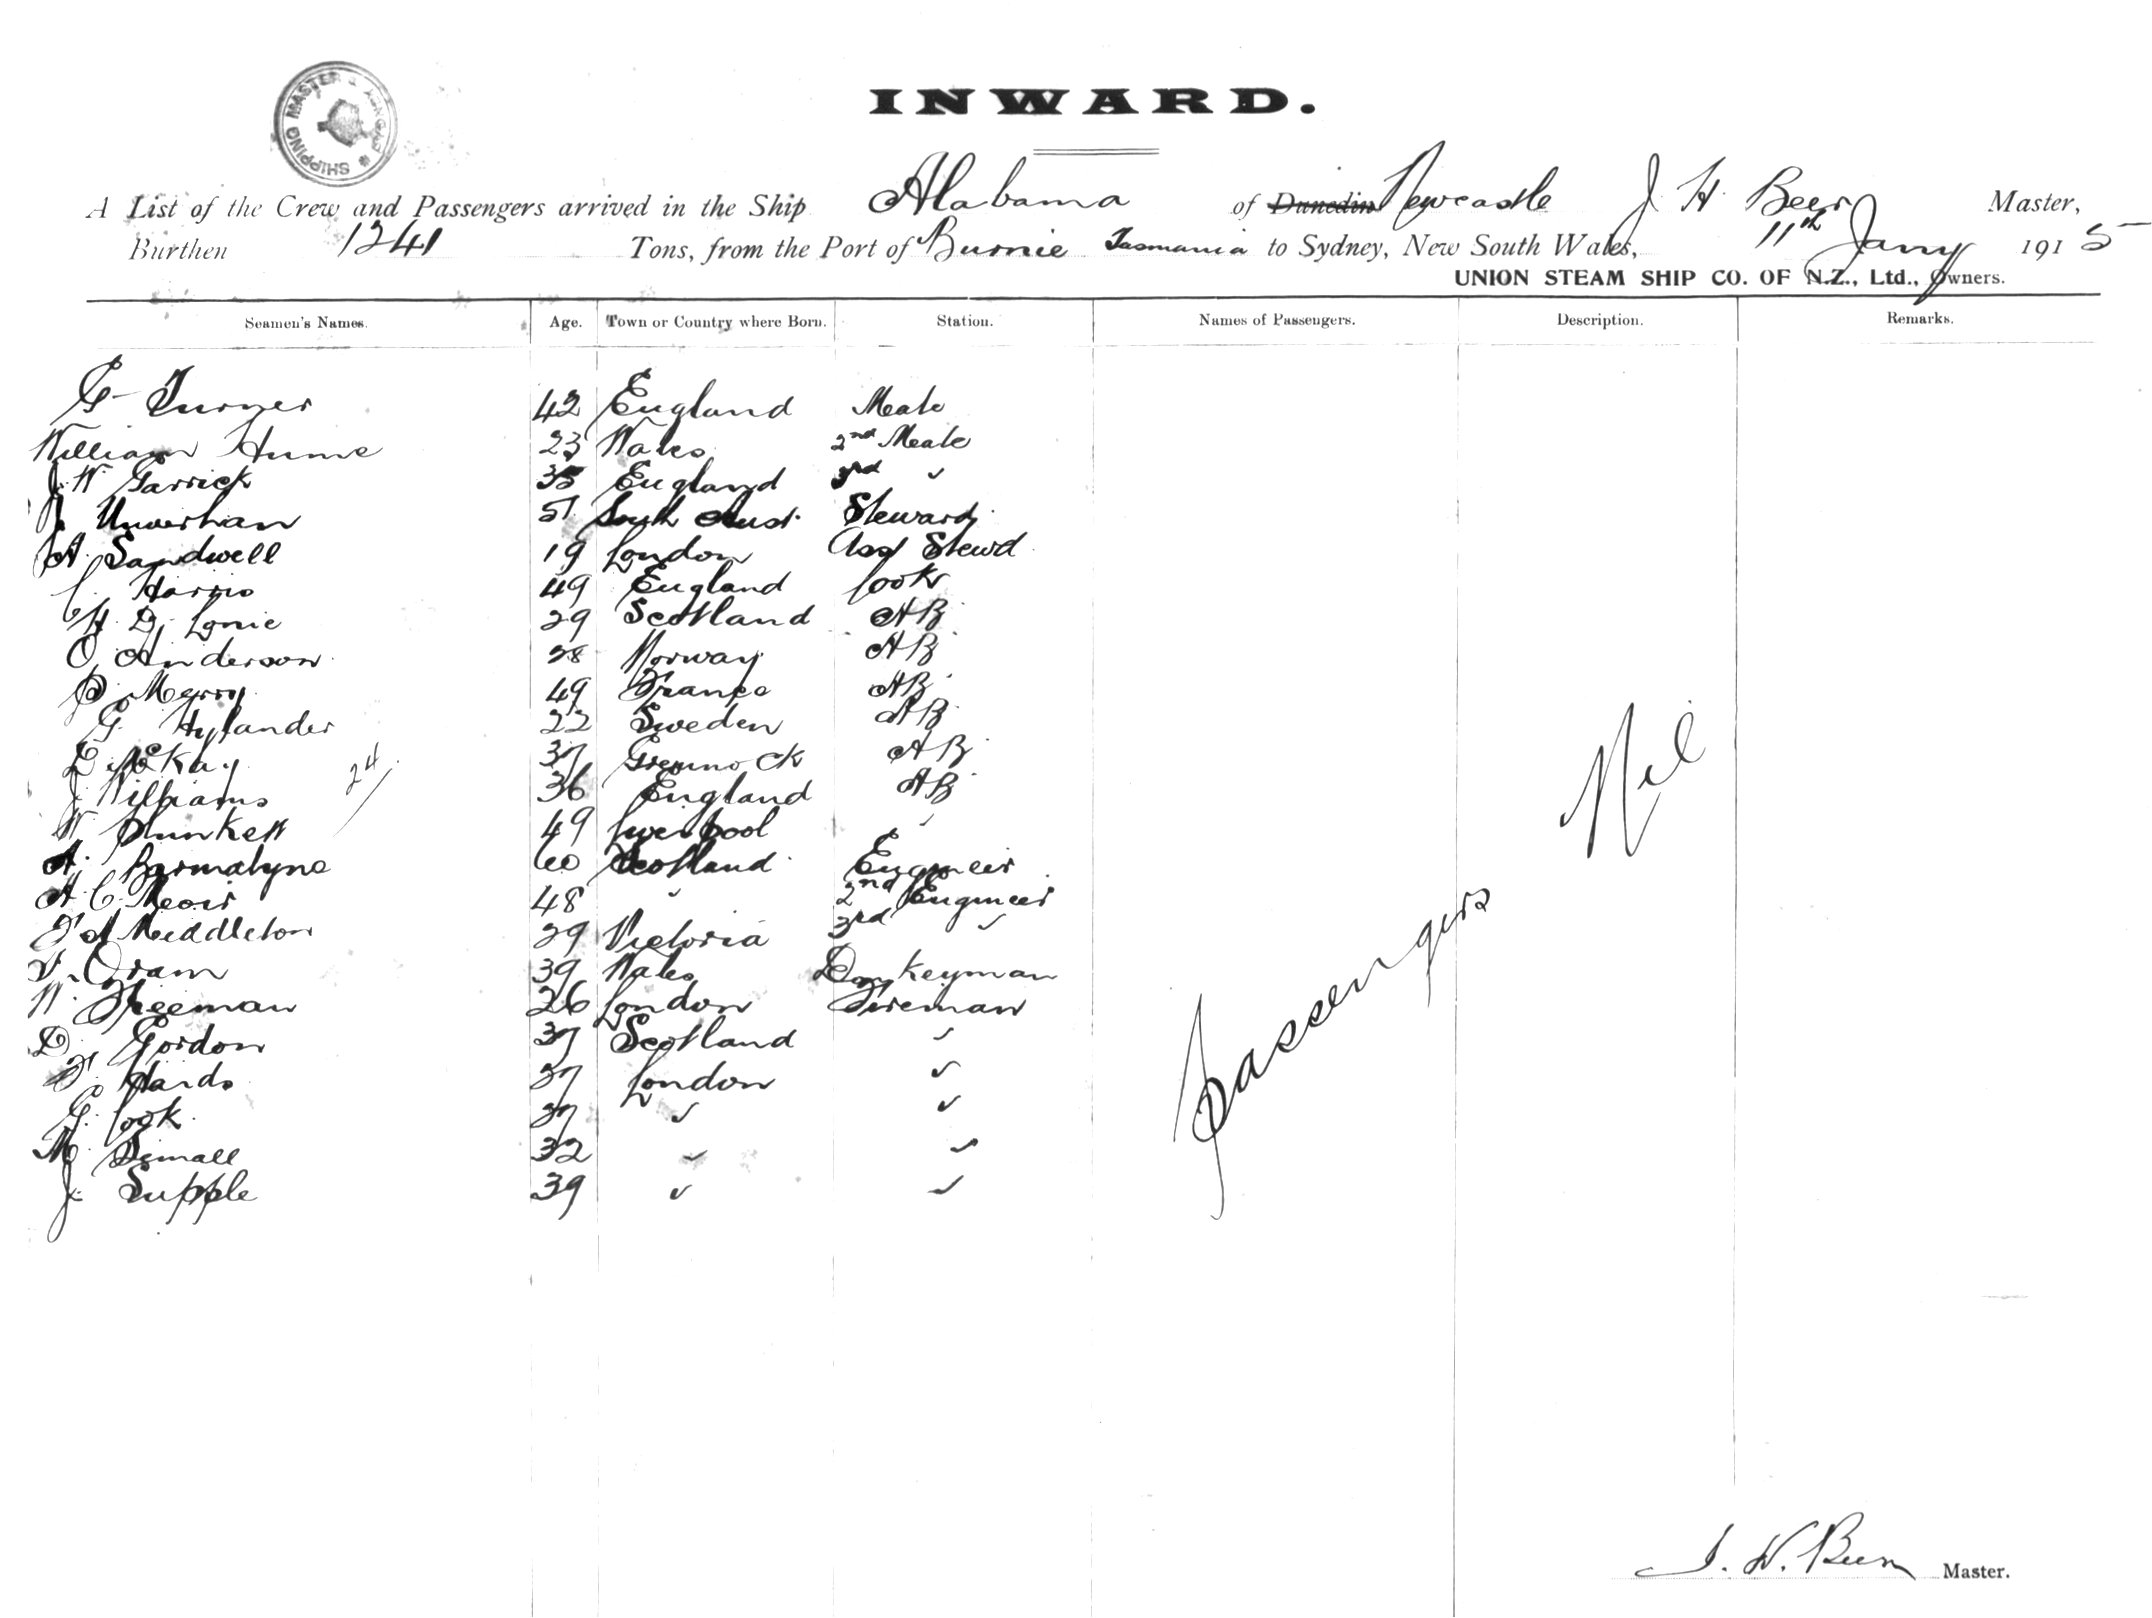 SHIPPING MASTER
INWARD.
A List of the Crew and Passengers arrived in the Ship Alabama of Dunedin Newcastle J H Beer Master,
Burthen 1241 Tons, from the Port of Burnie Tasmania to Sydney, New South Wales, 11th Jany 1915
UNION STEAM SHIP CO. OF N.Z., Ltd., Owners.
Seamen's Names. Age. Town or Country where Born. Station. Names of Passengers. Description. Remarks.
G Turner 42 England Mate
William Hume 23 Wales 2nd Mate
J. W. Garrick 35 England 3rd "
J. Unverhan 51 South Aust. Steward
A. Sandwell 19 London Asst Stewd
C. Harris 49 England Cook
H. D. Lonie 29 Scotland AB
O. Anderson 28 Norway AB
P. Merry 49 France AB
G. Hylander 22 Sweden AB
E. McKay 37 Greenock AB
J. Williams 36 England AB
24
W. Plunkett 49 Liverpool "
A. 60 Scotland Engineer
A. C. 48 " 2nd Engineer
F A Middleton 29 Victoria 3rd "
Oram 39 Wales Donkeyman
W. Freeman 26 London Fireman
D. Gordon 37 Scotland "
F. Hards 37 London "
G. Cook 37 " "
M. Small 32 " "
J. Supple 39 " "
Passengers Nil
J. H. Beer Master.